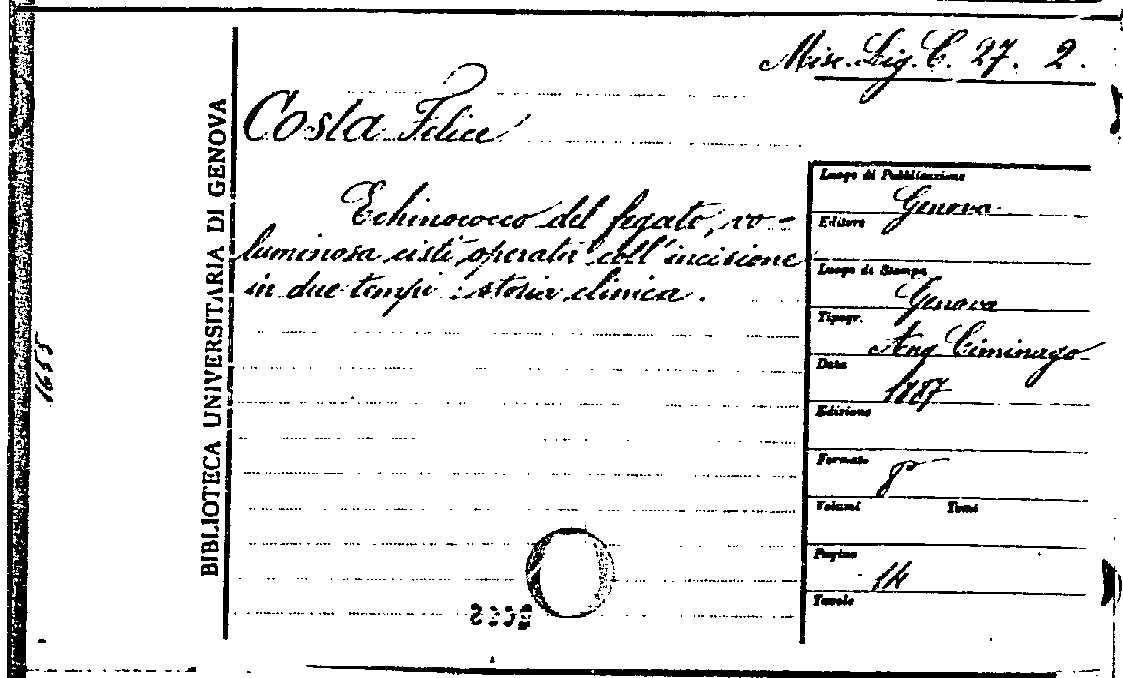 Misc. Lig. C. 27. 2.
Costa Felice
Echinococco del fegato, vo-
luminosa cisti, operata coll'incisione
in due tempi : storia clinica.
BIBLIOTECA UNIVERSITARIA DI GENOVA
1655
Luogo di Pubblicazione
Genova
Editore
Luogo di Stampa
Genova
Tipogr.
Ang Ciminago
Data
1887
Edizione
Formato
8°
Volumi Tomi
Pagine
14
Tavole